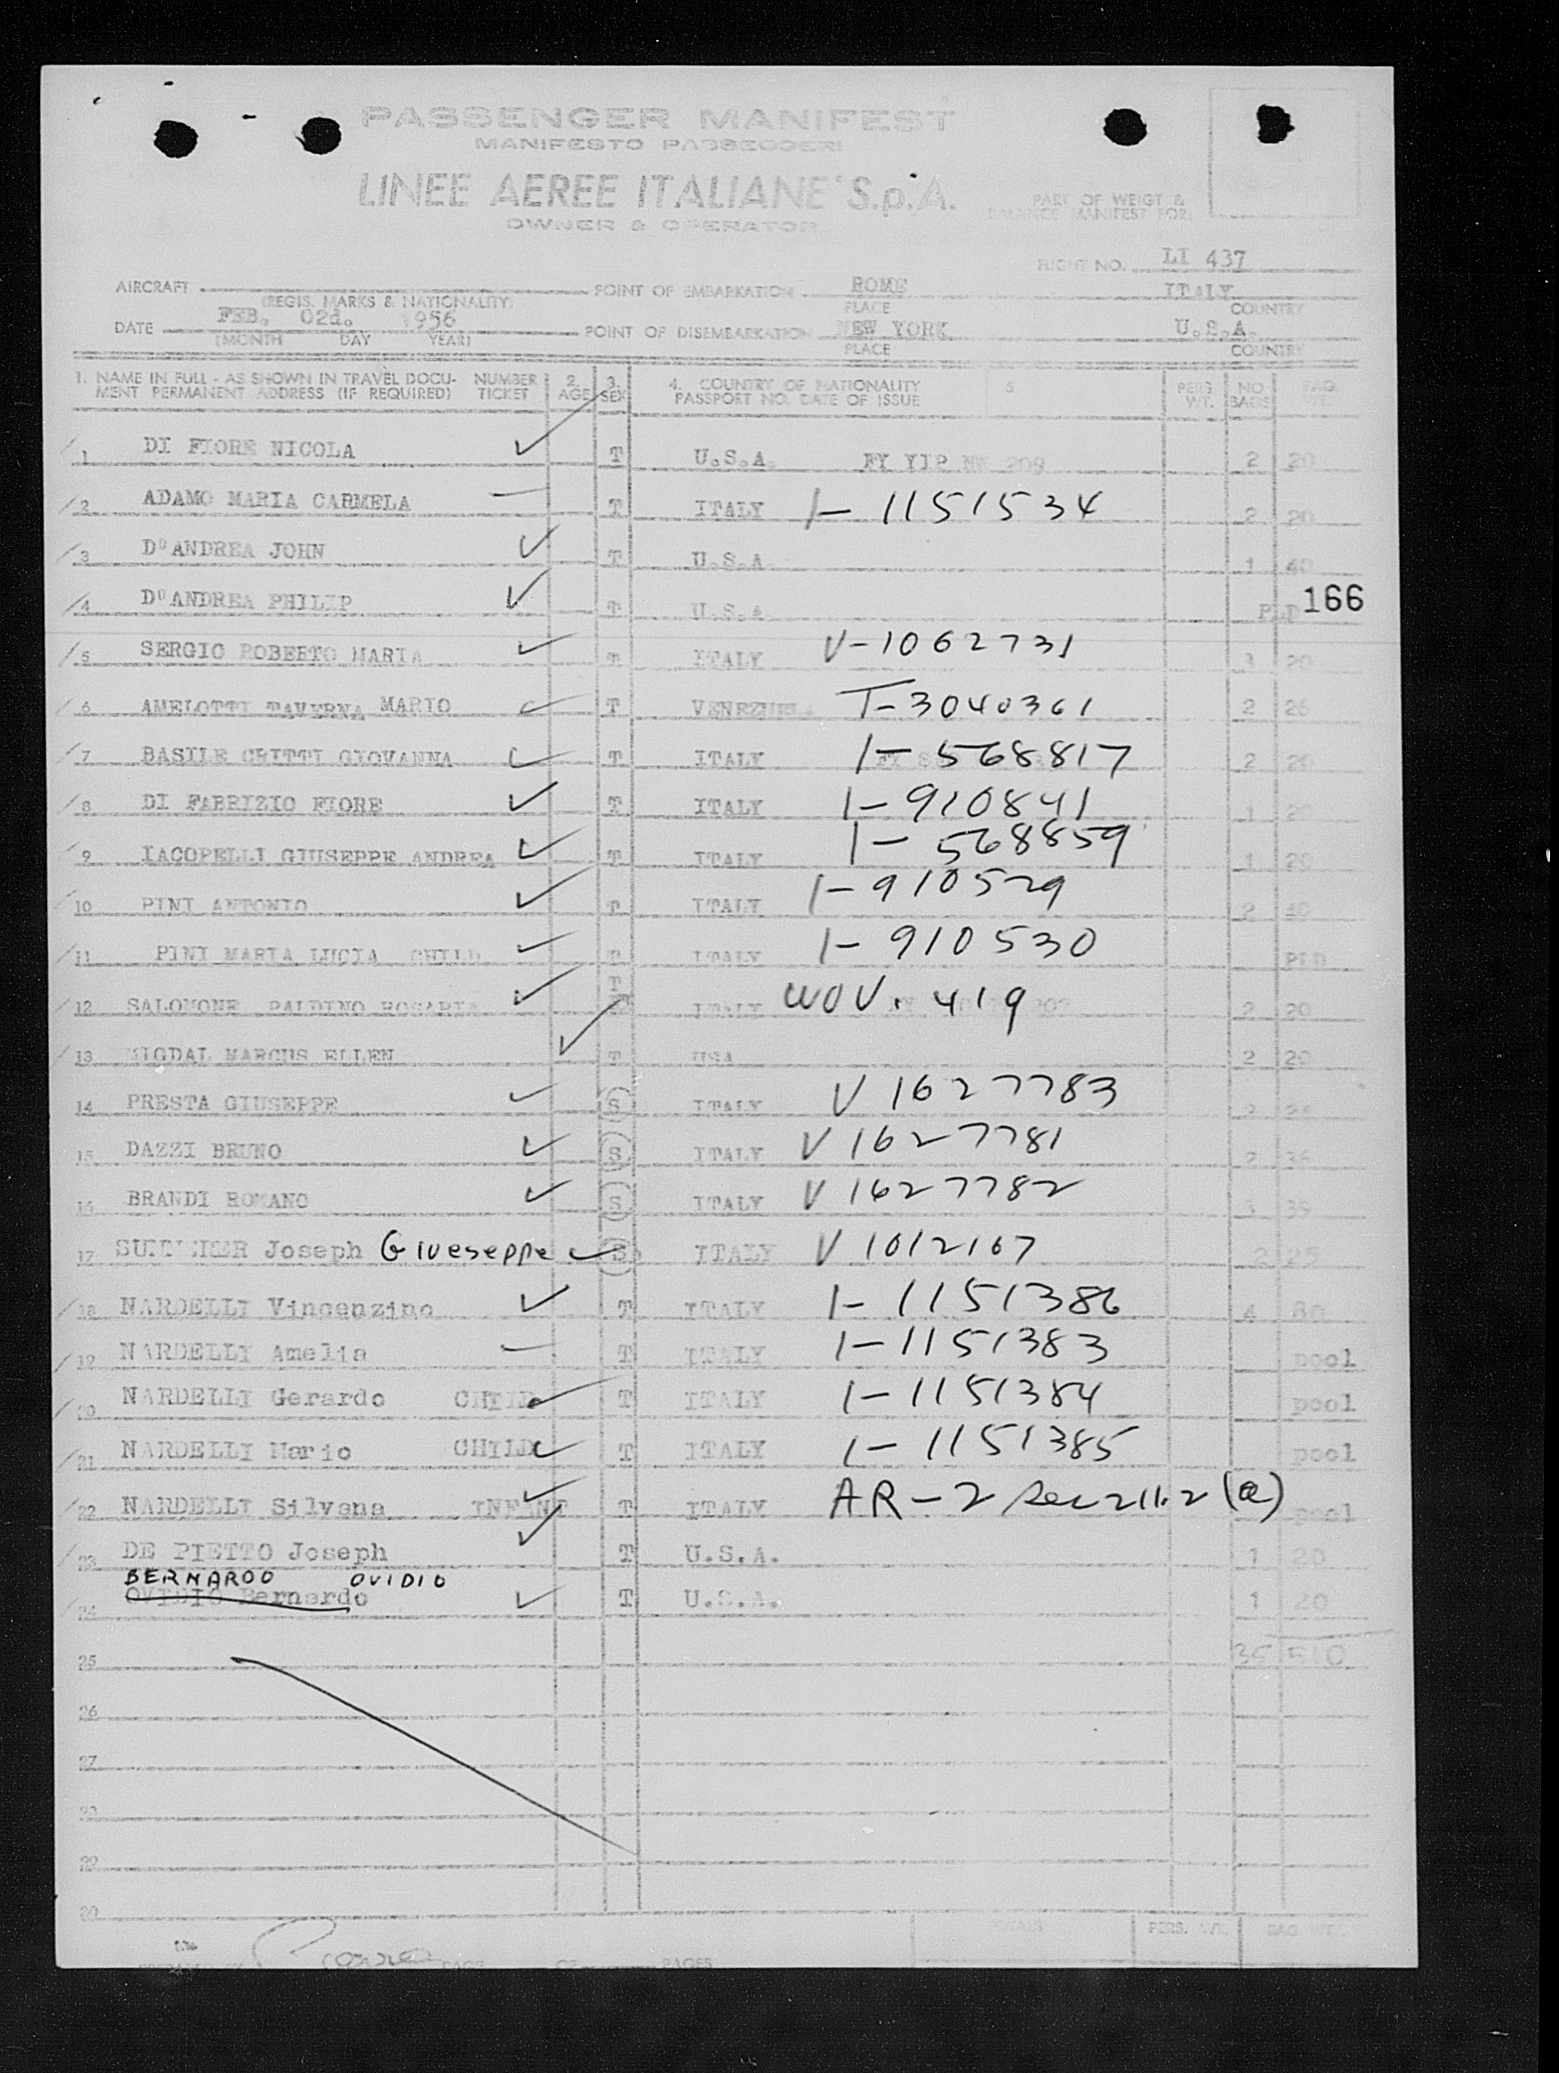 PASSENGER MANIFEST
MANIFESTO PASSEGGERI
LINEE AEREE ITALIANE S.p.A.
OWNER & OPERATOR
PART OF WEIGT &
BALANCE MANIFEST FOR:
FLIGHT NO. LI 437
AIRCRAFT POINT OF EMBARKATION ROME ITALY
(REGIS. MARKS & NATIONALITY) PLACE COUNTRY
DATE FEB. 02d. 1956 POINT OF DISEMBARKATION NEW YORK U.S.A.
(MONTH DAY YEAR) PLACE COUNTRY
1. NAME IN FULL - AS SHOWN IN TRAVEL DOCU- NUMBER 2. 3. 4. COUNTRY OF NATIONALITY 5 PERS. NO. BAG.
MENT PERMANENT ADDRESS (IF REQUIRED) TICKET AGE SEX PASSPORT NO. DATE OF ISSUE WT. BAGS WT.
1 DI FIORE NICOLA T U.S.A. 2 20
2 ADAMO MARIA CARMELA T ITALY I- 1151534 2 20
3 D'ANDREA JOHN T U.S.A. 1 40
4 D'ANDREA PHILIP T U.S.A. PLD 166
5 SERGIO ROBERTO MARIA T ITALY V-1062731 3 20
6 AMELOTTI TAVERNA MARIO T VENEZUELA T-3040361 2 26
7 BASILE CRITTI GIOVANNA T ITALY I- 568817 2 20
8 DI FABRIZIO FIORE T ITALY I-910841 1 20
9 IACOPELLI GIUSEPPE ANDREA T ITALY I- 568859 1 20
10 PINI ANTONIO T ITALY I-910529 2 40
11 PINI MARIA LUCIA CHILD T ITALY I- 910530 PLD
12 SALOMONE PALDINO ROSARIA T ITALY WOV. 419 2 20
13 MIGDAL MARCUS ELLEN T USA 2 20
14 PRESTA GIUSEPPE S ITALY V 1627783 2
15 DAZZI BRUNO S ITALY V 1627781 2 36
16 BRANDI ROMANO S ITALY V 1627782 3 39
17 Joseph Giueseppe S ITALY V 1012167 2 25
18 NARDELLI Vincenzino T ITALY I- 1151386 4 80
19 NARDELLI Amelia T ITALY I-1151383 pool
20 NARDELLI Gerardo CHILD T ITALY I-1151384 pool
21 NARDELLI Mario CHILD T ITALY I-1151385 pool
22 NARDELLI Silvana INFANT T ITALY AR-2 Sec 211.2 (a) pool
23 DE PIETTO Joseph T U.S.A. 1 20
BERNARDO OVIDIO
24 OVIDIO Bernardo T U.S.A. 1 20
25 35 510
26
27
28
29
30
PERS. WT. BAG WT.
PAGE OF PAGES